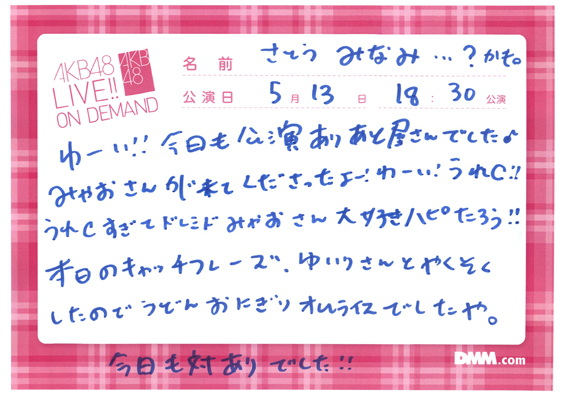 AKB48
LIVE!!
ON DEMAND
AKB
48
名前 さとう みなみ…?かも。
公演日 5月13日 18:30公演
わーい!! 今日も公演ありあと屋さんでした♪
みゃおさんが来てくださったよー! わーい! うれC!!
うれCすぎてドレミドみゃおさん大好きハピたろう!!
本日のキャッチフレーズ、ゆいりさんとやくそく
したのでうどんおにぎりオムライスでしたや。
今日も対ありでした!!
DMM.com